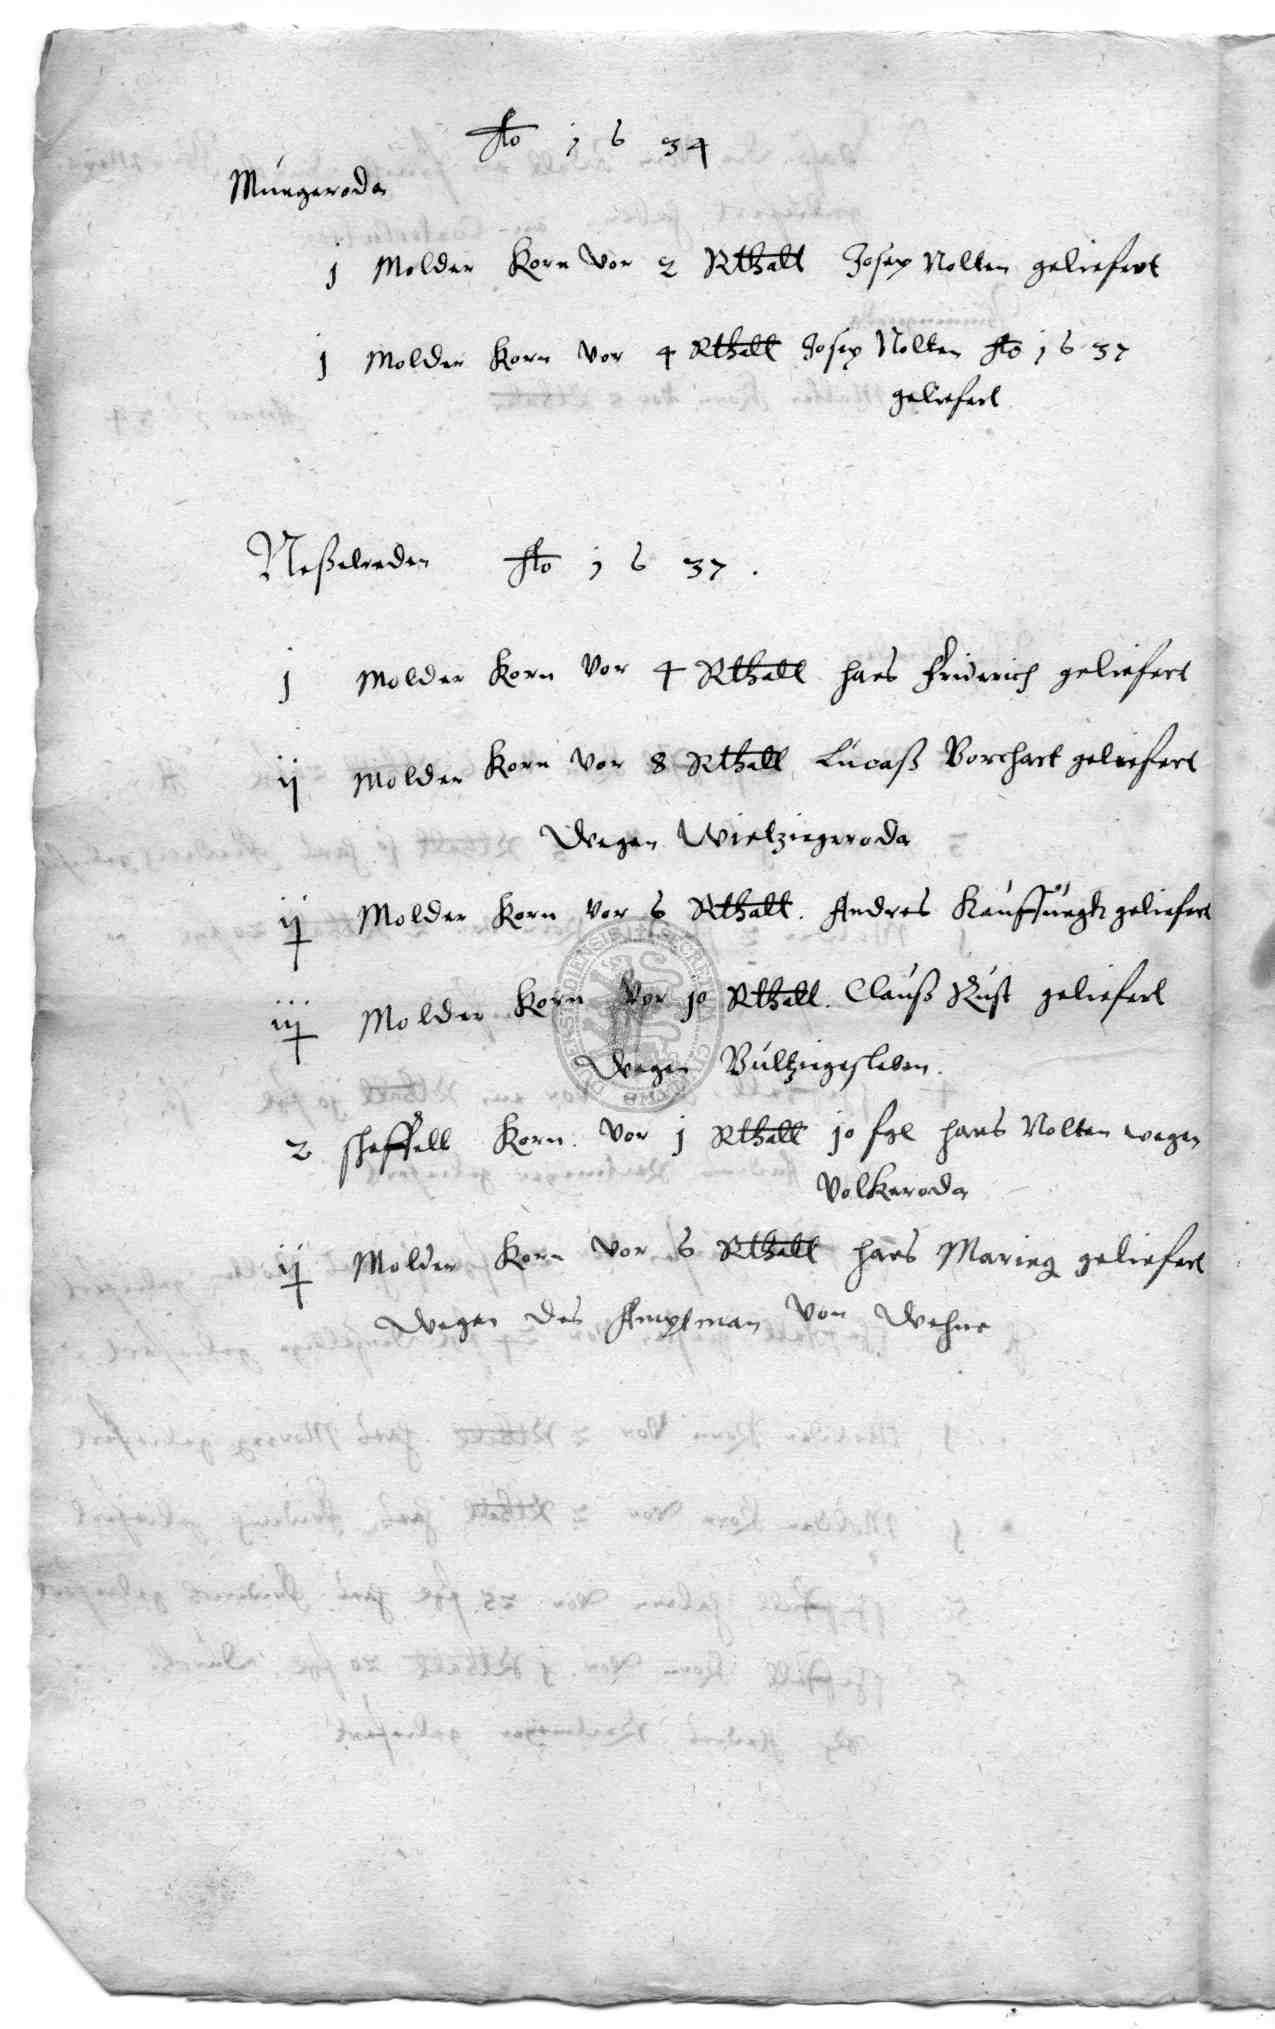 Ao 1 6 34
Müngeroda
j Molder Korn vor 2 Rthall Josep Nolten geliefert
j Molder Korn vor 4 Rthall Josep Nolten Ao 1 6 37
geliefert
Neßelreden Ao 1 6 37.
j Molder Korn vor 4 Rthall hans Friderich geliefert
ij Molder Korn vor 8 Rthall Lucaß Borchart geliefert
wegen Wietziegeroda
ij Molder Korn vor 6 Rthall. Andres geliefert
iij Molder Korn vor 10 Rthall. Clauß Rust geliefert
wegen Bültzingsleben.
2 scheffell Korn. vor 1 Rthall 10 fgl hans Nolten wegen
Volkeroda
ij Molder Korn vor 6 Rthall hans Maring geliefert
wegen des Amptman von Wehne